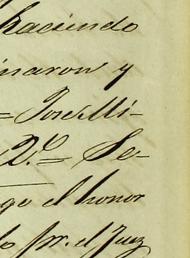 haciendo
inaron y
= José Mi-
2.º = Se-
go el honor
lo pr. el Juez